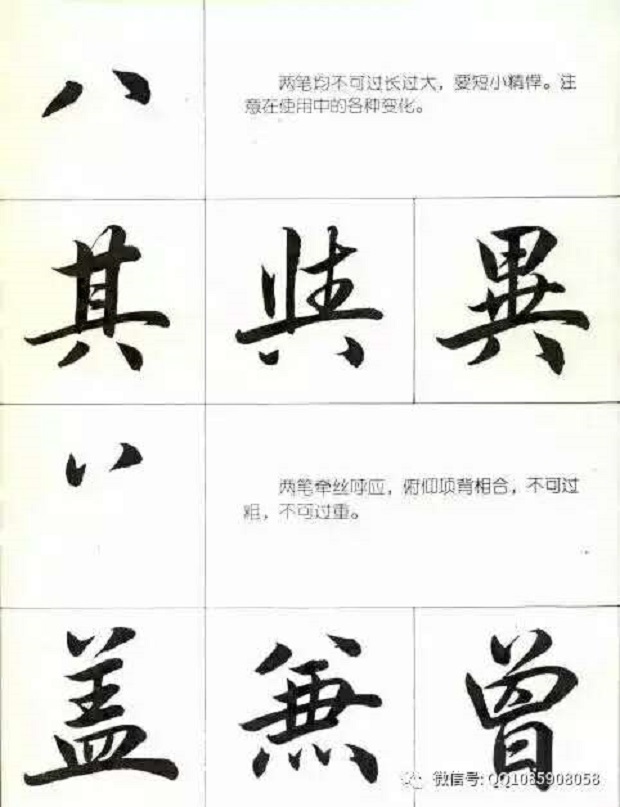 八
两笔均不可过长过大，要短小精悍。注
意在使用中的各种变化。
其 異
两笔牵丝呼应，俯仰项背相合，不可过
粗，不可过重。
盖 兼 曾
微信号: QQ1085908058